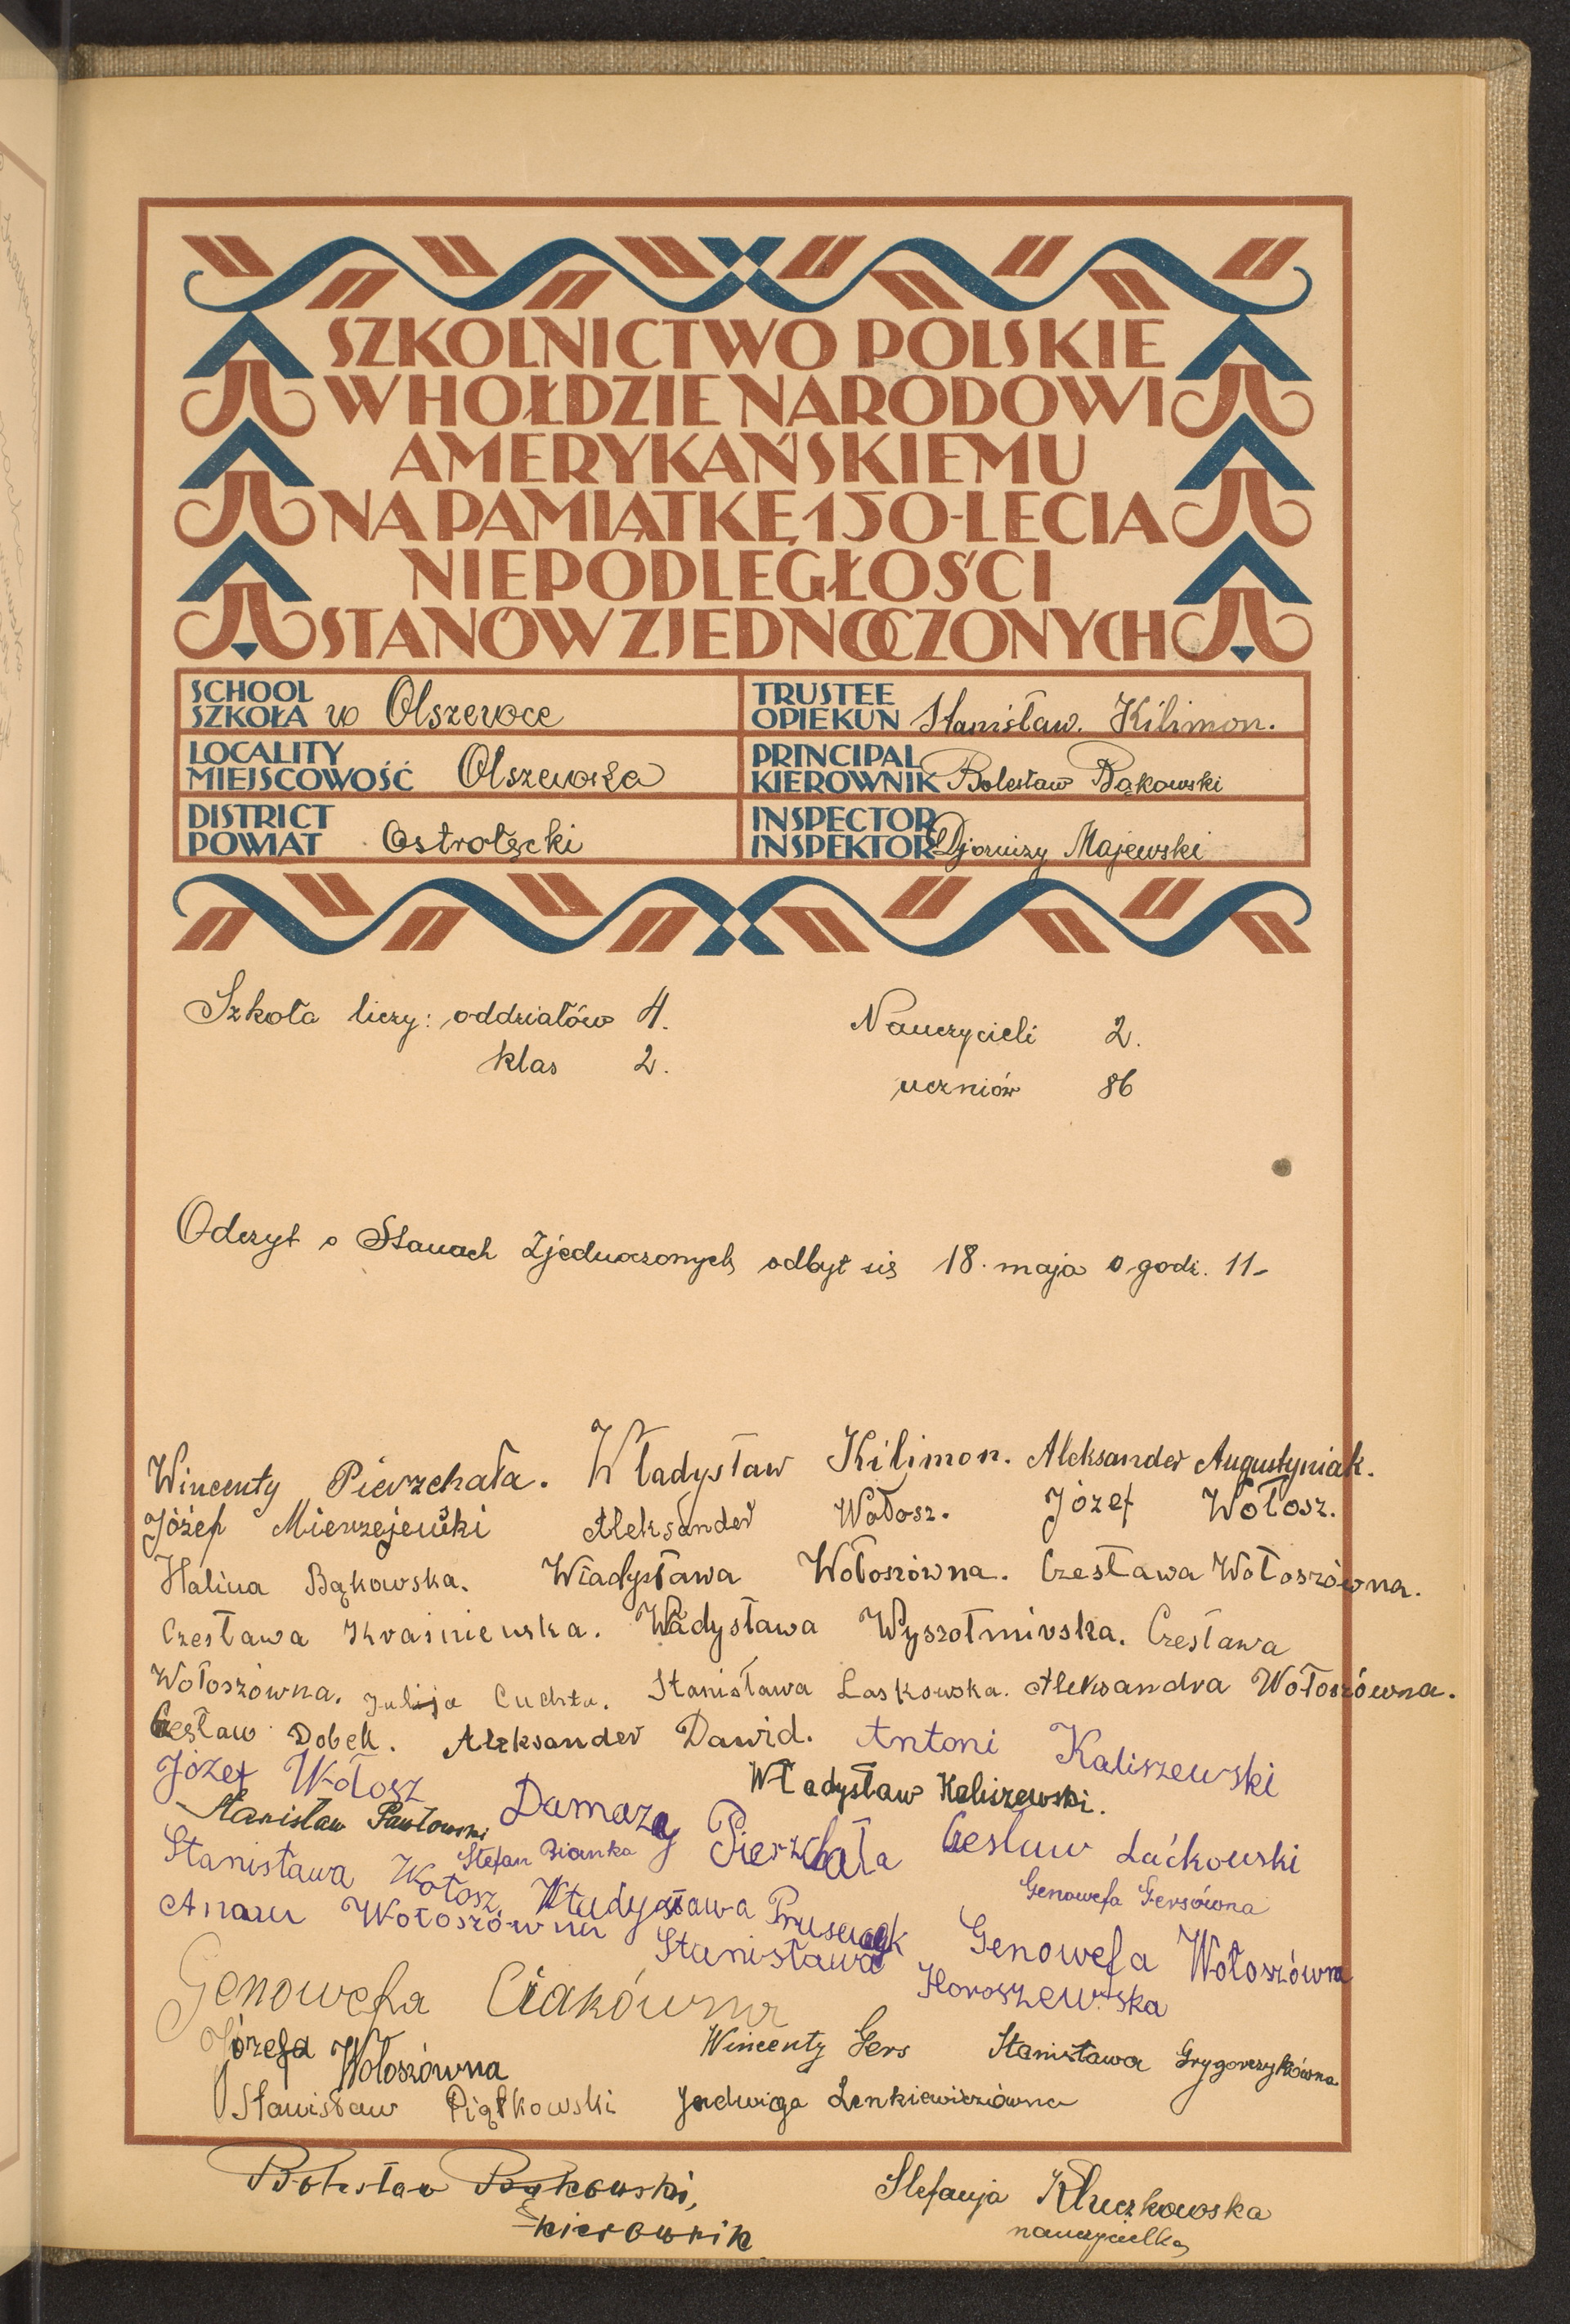 SZKOLNICTWO POLSKIE
W HOŁDZIE NARODOWI
AMERYKAŃSKIEMU
NA PAMIĄTKĘ 150-LECIA
NIEPODLEGŁOŚCI
STANÓW ZJEDNOCZONYCH
SCHOOL
SZKOŁA w Olszewce
TRUSTEE
OPIEKUN Stanisław. Kilimon.
LOCALITY
MIEJSCOWOŚĆ Olszewka
PRINCIPAL
KIEROWNIK Bolesław Bąkowski
DISTRICT
POWIAT Ostrołęcki
INSPECTOR
INSPEKTOR Djonizy Majewski
Szkoła liczy: oddziałów 4.
Nauczycieli 2.
klas 2.
uczniów 86
Odczyt o Stanach Zjednoczonych odbył się 18. maja o godz. 11-
Wincenty Pierzchała. Władysław Kilimon. Aleksander Augustyniak.
Józef Mierzejewski Aleksander Wołosz. Józef Wołosz.
Halina Bąkowska. Władysława Wołoszówna. Czesława Wołoszówna.
Czesława Kraśniewska. Władysława Czesława
Wołoszówna. Julija Cuchta. Stanisława Laskowska. Aleksandra Wołoszówna.
Czesław Dobek. Aleksander Dawid. Antoni Kaliszewski
Józef Wołosz Władysław Kaliszewski.
Stanisław Pawłowski Damazy Pierzchała Czesław Laćkowski
Stefan Bionka
Stanisława Wołosz Władysława Prusaczyk Genowefa Gersówna
Wołoszówna Stanisława Horoszewska Genowefa Wołoszówna
Genowefa Ciakówna
Józefa Wołoszówna Wincenty Gers Stanisława Grygorczykówna
Stanisław Piątkowski Jadwiga Lenkiewiczówna
Bolesław Bąkowski, Stefanja Kluczkowska
kierownik nauczycielka